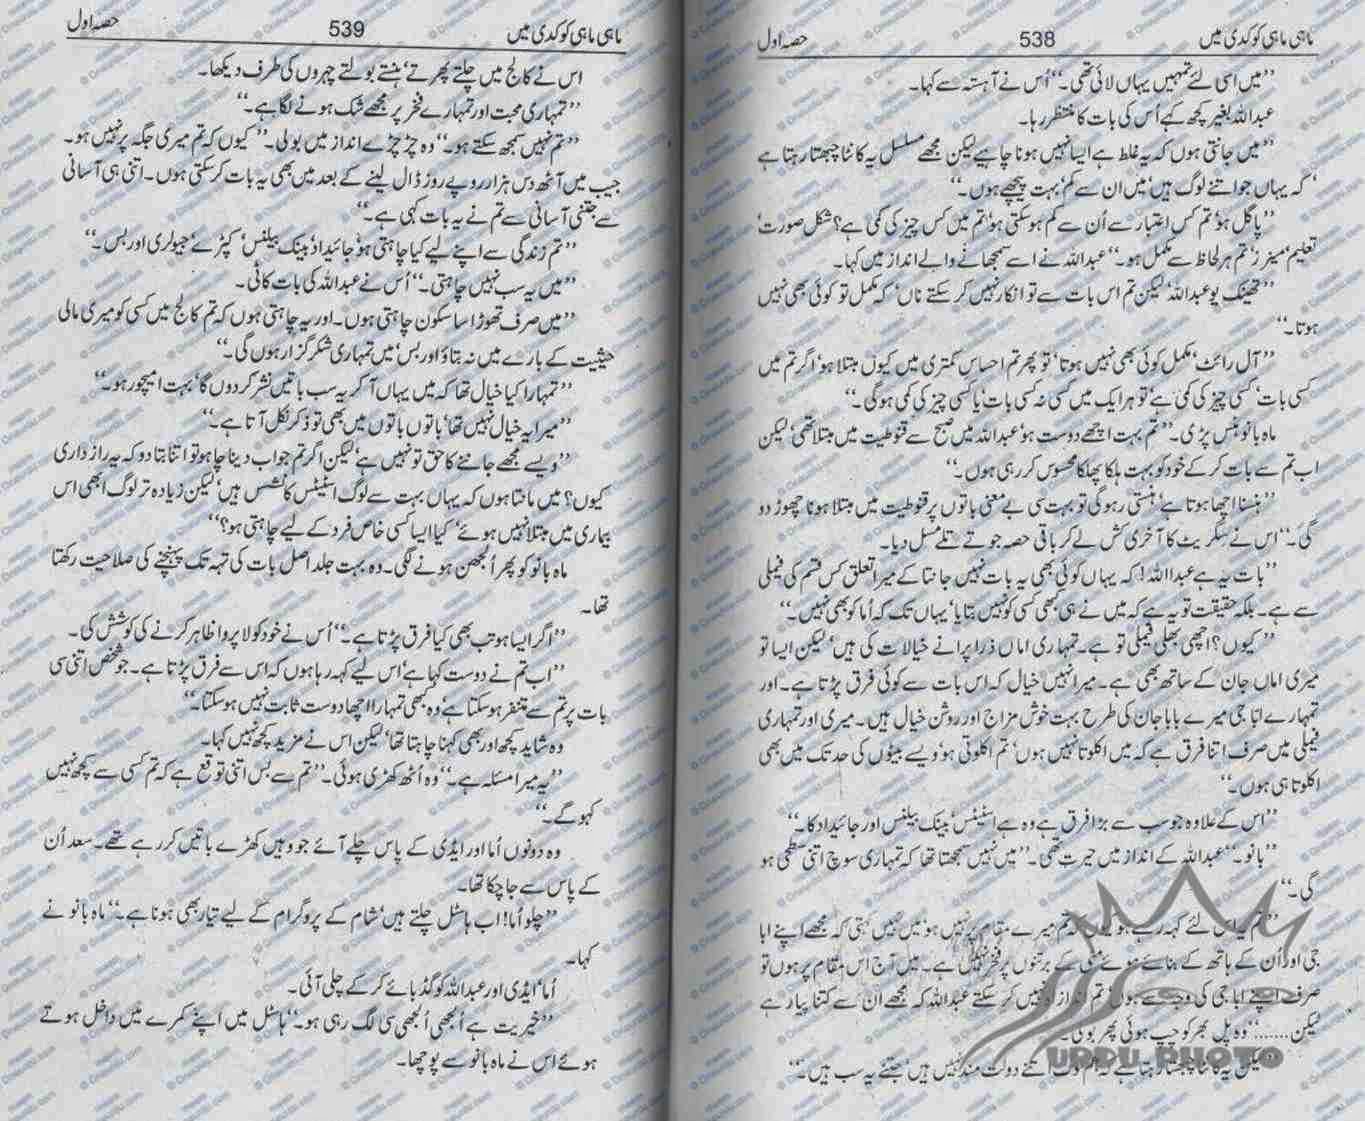 ماہی ماہی کو کدی میں 538 حصہ اول
’’میں اسی لئے تمہیں یہاں لائی تھی۔‘‘ اُس نے آہستہ سے کہا۔
عبداللہ بغیر کچھ کہے اُس کی بات کا منتظر رہا۔
’’میں جانتی ہوں کہ یہ غلط ہے ایسا نہیں ہونا چاہیے لیکن مجھے مسلسل یہ کانٹا چبھتا رہتا ہے
‘ کہ یہاں جو اتنے لوگ ہیں‘ میں ان سے کم‘ بہت پیچھے ہوں۔‘‘
’’پاگل ہو‘ تم کس اعتبار سے اُن سے کم ہو سکتی ہو‘ تم میں کس چیز کی کمی ہے؟ شکل صورت‘
تعلیم‘ مینرز‘ تم ہر لحاظ سے مکمل ہو۔‘‘ عبداللہ نے اسے سمجھانے والے انداز میں کہا۔
’’تھینک یو عبداللہ‘ لیکن تم اس بات سے تو انکار نہیں کر سکتے ناں‘ کہ مکمل تو کوئی بھی نہیں
ہوتا۔‘‘
’’آل رائٹ‘ مکمل کوئی بھی نہیں ہوتا‘ تو پھر تم احساس کمتری میں کیوں مبتلا ہو‘ اگر تم میں
کسی بات‘ کسی چیز کی کمی ہے‘ تو ہر ایک میں کسی نہ کسی بات‘ یا کسی چیز کی کمی ہو گی۔‘‘
ماہ بانو ہنس پڑی۔ ’’تم بہت اچھے دوست ہو‘ عبداللہ میں صبح سے قنوطیت میں مبتلا تھی‘ لیکن
اب تم سے بات کر کے خود کو بہت ہلکا پھلکا محسوس کر رہی ہوں۔‘‘
’’ہنسنا اچھا ہوتا ہے‘ ہنستی رہو گی تو بہت سی بے معنی باتوں پر قنوطیت میں مبتلا ہونا چھوڑ دو
گی۔‘‘ اس نے سگریٹ کا آخری کش لے کر باقی حصہ جوتے تلے مسل دیا۔
’’بات یہ ہے عبداللہ! کہ یہاں کوئی بھی یہ بات نہیں جانتا کے میرا تعلق کس قسم کی فیملی
سے ہے۔ بلکہ حقیقت تو یہ ہے کہ میں نے ہی کبھی کسی کو نہیں بتایا‘ یہاں تک کہ اُما کو بھی نہیں۔‘‘
’’کیوں؟ اچھی بھلی فیملی تو ہے۔ تمہاری اماں ذرا پرانے خیالات کی ہیں‘ لیکن ایسا تو
میری اماں جان کے ساتھ بھی ہے۔ میرا نہیں خیال کہ اس بات سے کوئی فرق پڑتا ہے۔ اور
تمہارے ابا جی میرے بابا جان کی طرح بہت خوش مزاج اور روشن خیال ہیں۔ میری اور تمہاری
فیملی میں صرف اتنا فرق ہے کہ میں اکلوتا نہیں ہوں‘ تم اکلوتی ہو‘ ویسے بیٹوں کی حد تک میں بھی
اکلوتا ہی ہوں۔‘‘
’’اس کے علاوہ جو سب سے بڑا فرق ہے وہ ہے اسٹیٹس‘ بینک بیلنس اور جائیداد کا۔‘‘
’’بانو۔‘‘ عبداللہ کے انداز میں حیرت تھی۔ ’’میں نہیں سمجھتا تھا کہ تمہاری سوچ اتنی سطحی ہو
گی۔‘‘
’’تم اس لئے کہہ رہے ہو کہ تم میرے مقام پر نہیں ہو‘ میں نہیں کہتی کہ مجھے اپنے ابا
جی اور اُن کے ہاتھ کے بنائے ہوئے مٹی کے برتنوں پر فخر نہیں ہے۔ میں آج اس مقام پر ہوں تو
صرف اپنے ابا جی کی وجہ سے ہوں‘ تم اندازہ نہیں کر سکتے عبداللہ کہ مجھے ان سے کتنا پیار ہے
لیکن.......‘‘ وہ پل بھر کو چپ ہوئی پھر بولی۔
لیکن یہ کانٹا چبھتا رہتا ہے کہ ہم لوگ اتنے دولت مند نہیں ہیں‘ جتنے یہ سب ہیں۔‘‘
URDU PHOTO
ماہی ماہی کو کدی میں 539 حصہ اول
اس نے کالج میں چلتے پھرتے‘ ہنستے بولتے چہروں کی طرف دیکھا۔
’’تمہاری محبت اور تمہارے فخر پر مجھے شک ہونے لگا ہے۔‘‘
’’تم نہیں سمجھ سکتے ہو۔‘‘ وہ چڑچڑے انداز میں بولی۔ ’’کیوں کہ تم میری جگہ پر نہیں ہو۔
جیب میں آٹھ دس ہزار روپے روز ڈال لینے کے بعد میں بھی یہ بات کر سکتی ہوں۔ اتنی ہی آسانی
سے جتنی آسانی سے تم نے یہ بات کہی ہے۔‘‘
’’تم زندگی سے اپنے لیے کیا چاہتی ہو‘ جائیداد‘ بینک بیلنس‘ کپڑے‘ جیولری اور بس۔‘‘
’’میں یہ سب نہیں چاہتی۔‘‘ اُس نے عبداللہ کی بات کاٹی۔
’’میں صرف تھوڑا سا سکون چاہتی ہوں۔ اور یہ چاہتی ہوں کہ تم کالج میں کسی کو میری مالی
حیثیت کے بارے میں نہ بتاؤ اور بس‘ میں تمہاری شکر گزار ہوں گی۔‘‘
’’تمہارا کیا خیال تھا کہ میں یہاں آ کر یہ سب باتیں نشر کر دوں گا‘ بہت امیچور ہو۔‘‘
’’میرا یہ خیال نہیں تھا‘ باتوں باتوں میں بھی تو ذکر نکل آتا ہے۔‘‘
’’ویسے مجھے جاننے کا حق تو نہیں ہے‘ لیکن اگر تم جواب دینا چاہو تو اتنا بتا دو کہ یہ راز داری
کیوں؟ میں مانتا ہوں کہ یہاں بہت سے لوگ اسٹیٹس کانشس ہیں‘ لیکن زیادہ تر لوگ ابھی اس
بیماری میں مبتلا نہیں ہوئے‘ کیا ایسا کسی خاص فرد کے لیے چاہتی ہو؟‘‘
ماہ بانو کو پھر اُلجھن ہونے لگی۔ وہ بہت جلد اصل بات کی تہہ تک پہنچنے کی صلاحیت رکھتا
تھا۔
’’اگر ایسا ہو تب بھی کیا فرق پڑتا ہے۔‘‘ اُس نے خود کو لاپروا ظاہر کرنے کی کوشش کی۔
’’اب تم نے دوست کہا ہے‘ اس لیے کہہ رہا ہوں کہ اس سے فرق پڑتا ہے۔ جو شخص اتنی سی
بات پر تم سے متنفر ہو سکتا ہے‘ وہ کبھی تمہارا اچھا دوست ثابت نہیں ہو سکتا۔‘‘
وہ شاید کچھ اور بھی کہنا چاہتا تھا‘ لیکن اس نے مزید کچھ نہیں کہا۔
’’یہ میرا مسئلہ ہے۔‘‘ وہ اُٹھ کھڑی ہوئی۔ ’’تم سے بس اتنی توقع ہے کہ تم کسی سے کچھ نہیں
کہو گے۔‘‘
وہ دونوں اُما اور ایڈی کے پاس چلے آئے جو وہیں کھڑے باتیں کر رہے تھے۔ سعد اُن
کے پاس سے جا چکا تھا۔
’’چلو اُما! اب ہاسٹل چلتے ہیں‘ شام کے پروگرام کے لیے تیار بھی ہونا ہے۔‘‘ ماہ بانو نے
کہا۔
اُما‘ ایڈی اور عبداللہ کو گڈ بائے کر کے چلی آئی۔
’’خیریت ہے اُلجھی اُلجھی سی لگ رہی ہو۔‘‘ ہاسٹل میں اپنے کمرے میں داخل ہوتے
ہوئے اس نے ماہ بانو سے پوچھا۔